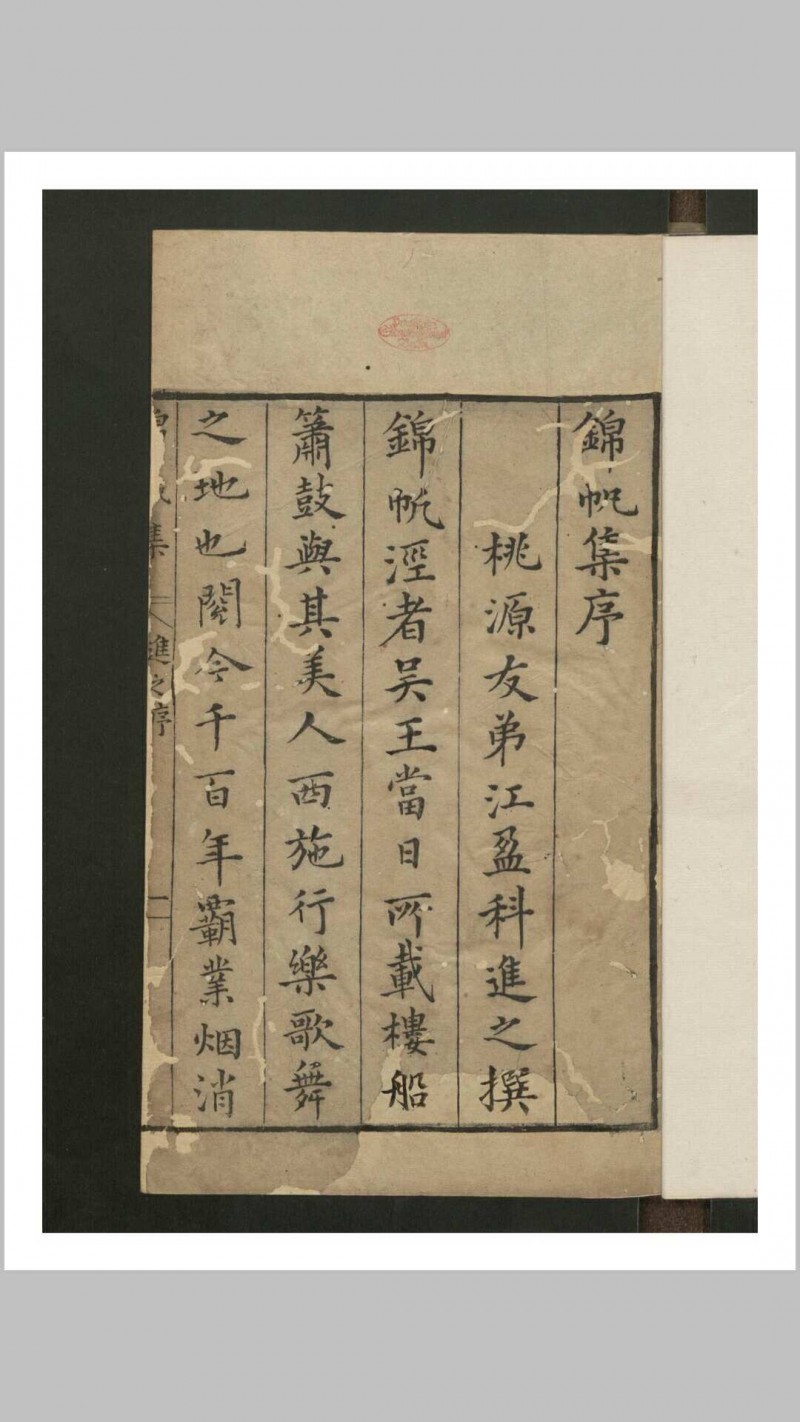 錦帆集序
桃源友弟江盈科進之撰
錦帆涇者吳王當日所載樓船
簫鼓與其美人西施行樂歌舞
之地也閱今千百年霸業烟消
集 進之序 一